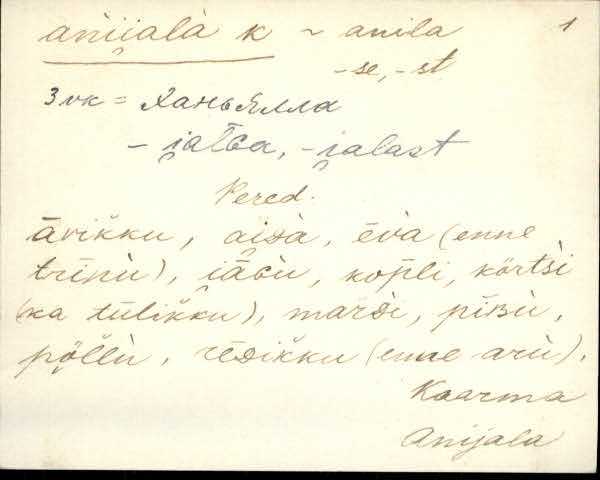 ani̯i̯alà k ~ anila 1
-se, -st
3 vk = Ханьялла
- i̯al̄ᴅa, -i̯alast
Pered.
ävik̆ku, aiᴅà, ēvà (enne
trīnù), i̯äɢù, kop̄li, kört̀si
(ka tülik̆ku), marᴅi, pīʙù,
pȭl̆lù, rēᴅik̆ku (enne arù).
Kaarma
Anijala